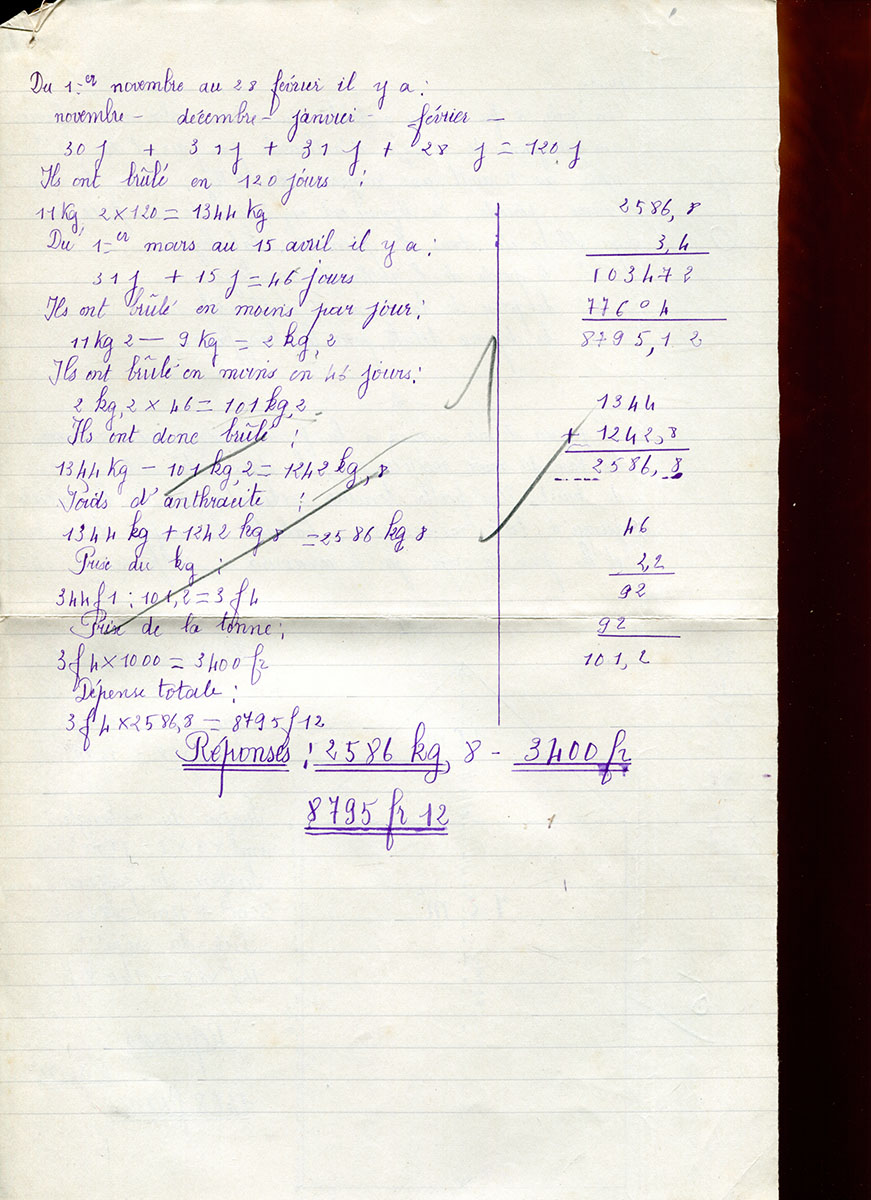 Du 1er novembre au 28 février il y a :
novembre - décembre - janvier - février -
30 j + 31 j + 31 j + 28 j = 120 j
Ils ont brûlé en 120 jours :
11 kg, 2 × 120 = 1344 kg
Du 1er mars au 15 avril il y a :
31 j + 15 j = 46 jours
Ils ont brûlé en moins par jour :
11 kg 2 — 9 kg = 2 kg, 2
Ils ont brûlé en moins en 46 jours :
2 kg, 2 × 46 = 101 kg, 2
Ils ont donc brûlé :
1344 kg - 101 kg, 2 = 1242 kg, 8
Poids d'anthracite :
1344 kg + 1242 kg 8 = 2586 kg 8
Prix du kg :
344 f 1 : 101,2 = 3 f 4
Prix de la tonne :
3 f 4 × 1000 = 3400 fr
Dépense totale :
3 f 4 × 2586,8 = 8795 f 12
2586,8
3,4
103472
77604
8795,12
1344
+ 1242,8
2586,8
46
2,2
92
92
101,2
Réponses : 2586 kg, 8 - 3400 fr
8795 fr 12